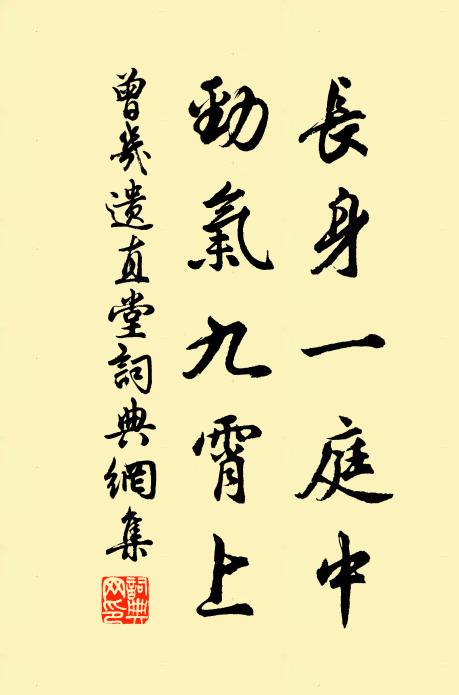 長身一庭中
勁氣九霄上
曾幾遺直堂詞典網集
詞典網印